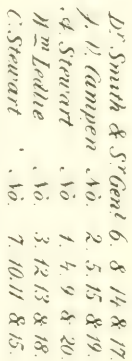 Dr Smith & St Geni 6 8 14 & 17.
J. V. Campen No. 2. 5. 15 & 19.
A. Stewart No 1. 4. 9 & 20.
Wm Leslie No. 3. 12 13 & 18.
C. Stewart No. 7. 10. 11 & 15.